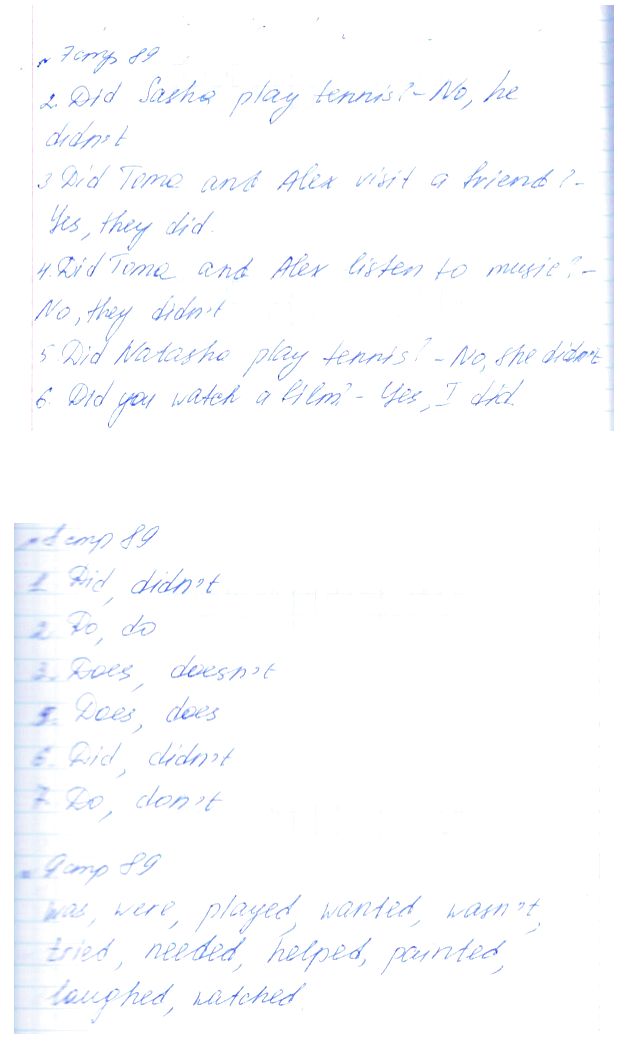 № 7 стр 89
2. Did Sasha play tennis? - No, he
didn't
3 Did Toma and Alex visit a friend? -
Yes, they did.
4. Did Toma and Alex listen to music? -
No, they didn't
5 Did Natasha play tennis? - No, she didn't
6. Did you watch a film? - Yes, I did.
№ 8 стр 89
1. Did, didn't
2. Do, do
3. Does, doesn't
5. Does, does
6. Did, didn't
7. Do, don't
№ 9 стр 89
was, were, played, wanted, wasn't,
tried, needed, helped, painted,
laughed, watched